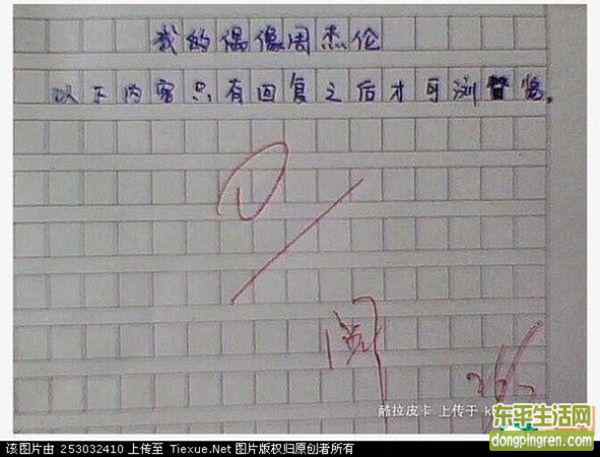 我的偶像周杰伦
以下内容只有回复之后才可浏览。
阅
酷拉皮卡 上传于
东平生活网
dongpingren.com
该图片由 253032410 上传至 Tiexue.Net 图片版权归原创者所有